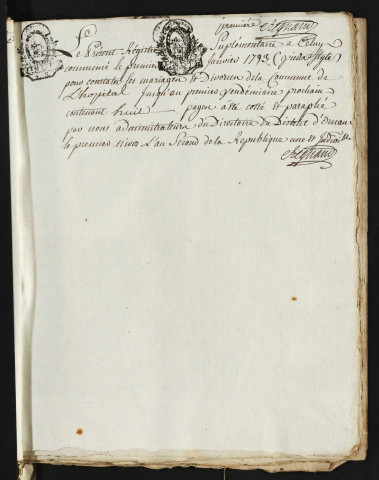 premiere Regnard
Le Present Registre Suplémentaire a Celuy
commencé le premier Janvier 1793 (vieux Style)
pour constater les mariages & Divorces de la Commune de
L'hopital Jusqu'au premier Vendémiaire prochain
contenant huit pages a été cotté et paraphé
par nous administrateur du Directoire du District d'
le premier nivos L'an Second de la Republique une et Indivisible
Regnard